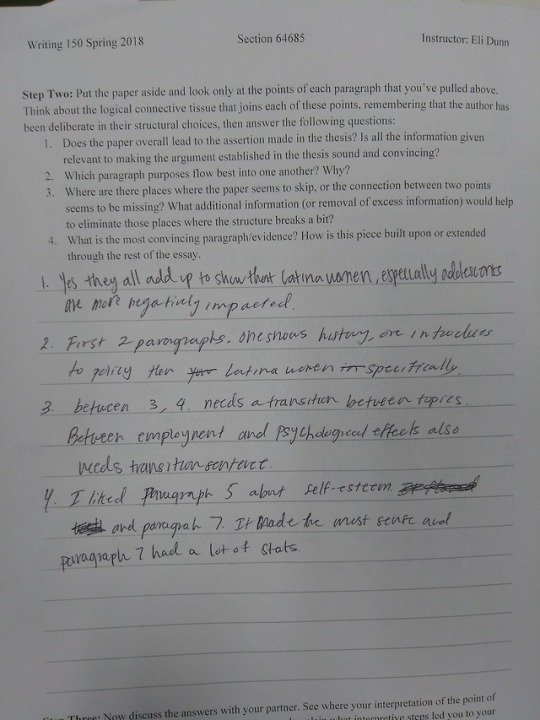 Writing 150 Spring 2018 Section 64685 Instructor: Eli Dunn
Step Two: Put the paper aside and look only at the points of each paragraph that you've pulled above.
Think about the logical connective tissue that joins each of these points, remembering that the author has
been deliberate in their structural choices, then answer the following questions:
1. Does the paper overall lead to the assertion made in the thesis? Is all the information given
relevant to making the argument established in the thesis sound and convincing?
2. Which paragraph purposes flow best into one another? Why?
3. Where are there places where the paper seems to skip, or the connection between two points
seems to be missing? What additional information (or removal of excess information) would help
to eliminate those places where the structure breaks a bit?
4. What is the most convincing paragraph/evidence? How is this piece built upon or extended
through the rest of the essay.
1. Yes they all add up to show that Latina women, especially adolescents
are more negatively impacted.
2. First 2 paragraphs. One shows history, one introduces
to policy then Latina women specifically.
3. between 3, 4. needs a transition between topics.
Between employment and psychological effects also
needs transition sentence.
4. I liked Paragraph 5 about self-esteem
and paragraph 7. It made the most sense and
paragraph 7 had a lot of stats.
Three: Now discuss the answers with your partner. See where your interpretation of the point of
what interpretive steps led you to your